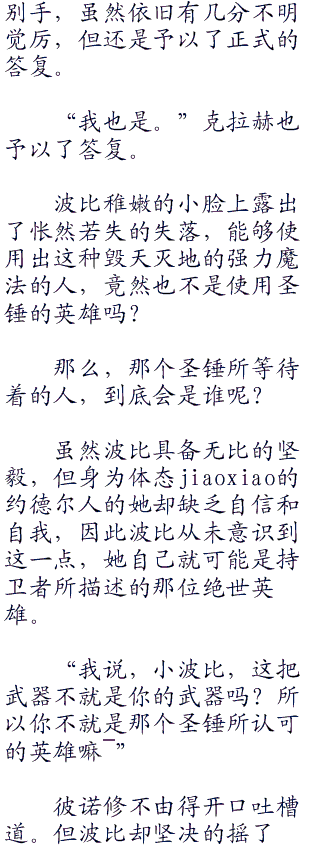 别手，虽然依旧有几分不明
觉厉，但还是予以了正式的
答复。
“我也是。”克拉赫也
予以了答复。
波比稚嫩的小脸上露出
了怅然若失的失落，能够使
用出这种毁天灭地的强力魔
法的人，竟然也不是使用圣
锤的英雄吗？
那么，那个圣锤所等待
着的人，到底会是谁呢？
虽然波比具备无比的坚
毅，但身为体态jiaoxiao的
约德尔人的她却缺乏自信和
自我，因此波比从未意识到
这一点，她自己就可能是持
卫者所描述的那位绝世英
雄。
“我说，小波比，这把
武器不就是你的武器吗？所
以你不就是那个圣锤所认可
的英雄嘛¯”
彼诺修不由得开口吐槽
道。但波比却坚决的摇了